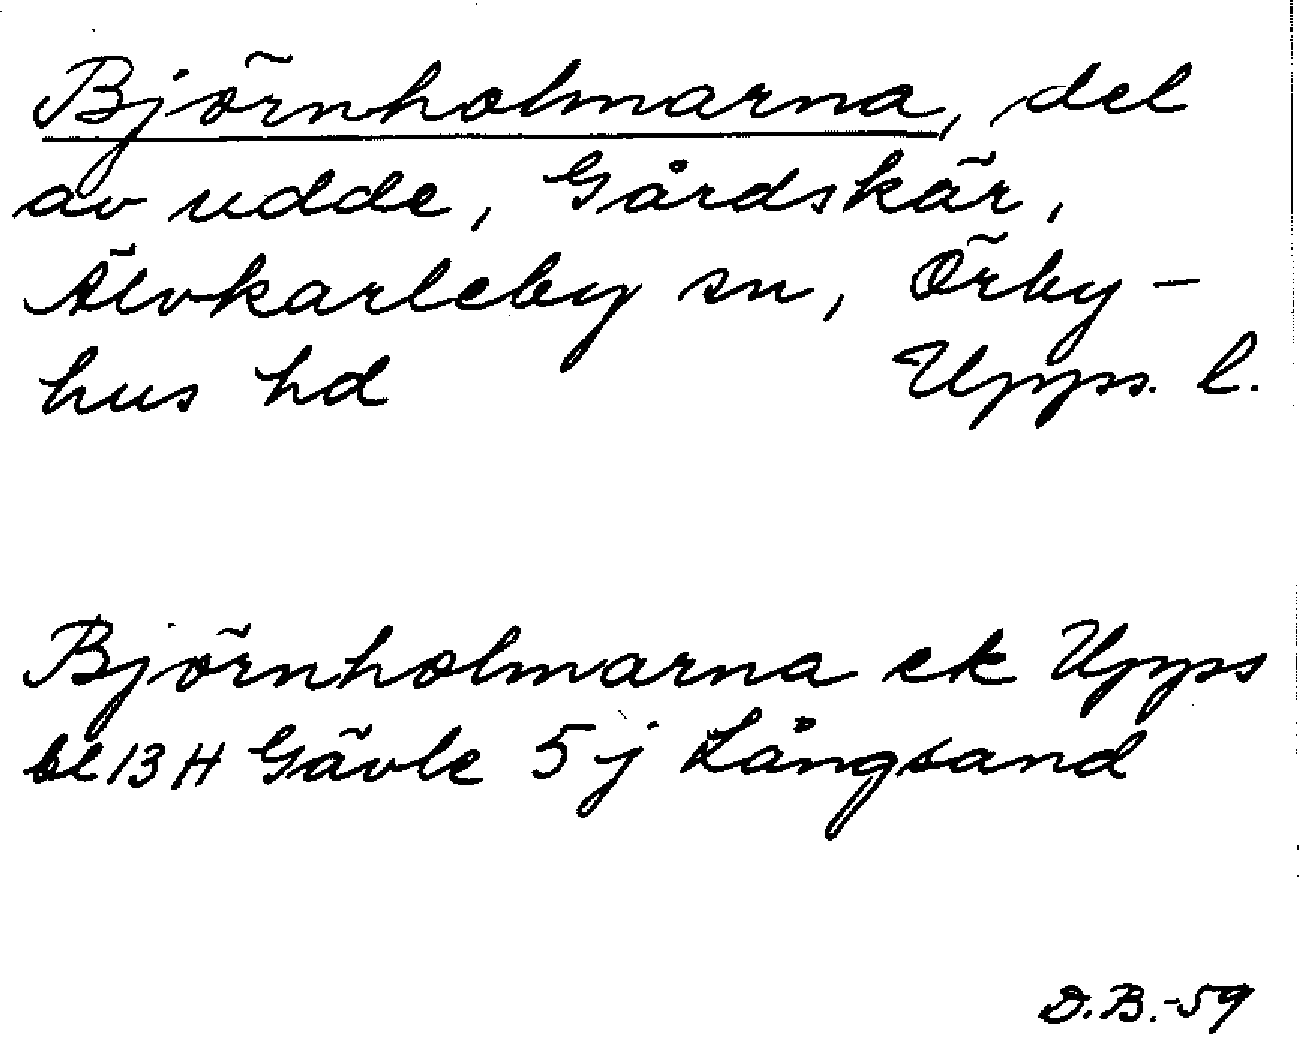 Björnholmarna, del
av udde, Gårdskär,
Älvkarleby sn, Örby-
hus hd Upps. l.
Björnholmarna ek Upps
bl 13 H Gävle 5 j Långsand
D.B.-59